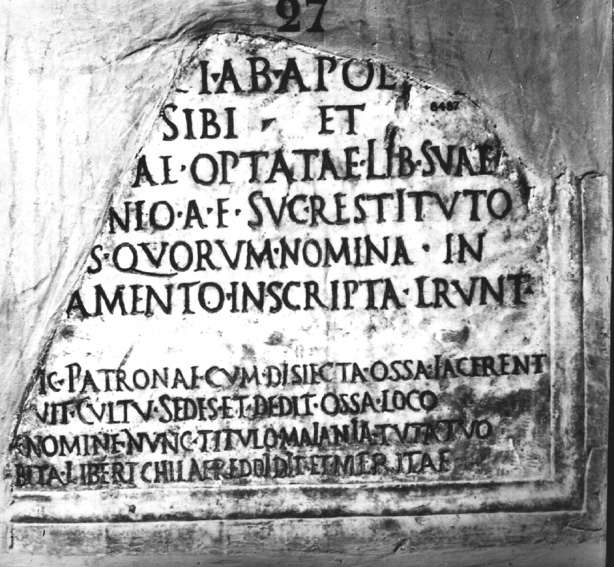 27
I·A·B·APOL
6487
SIBI ET
AL·OPTATAE·LIB·SVAE
NIO·A·F·SVC·RESTITVTO
S·QVORVM·NOMINA·IN
AMENTO·INSCRIPTA·ERVNT
IC·PATRONAE·CVM·DISIECTA·OSSA·IACERENT
VIT·CVLTV·SEDES·ET·DEDIT·OSSA·LOCO
NOMINE·NVNC·TITVLO·MAIANIA·TVTA·TVO
BITA·LIBERT REDDIDIT·ET·MERITAE